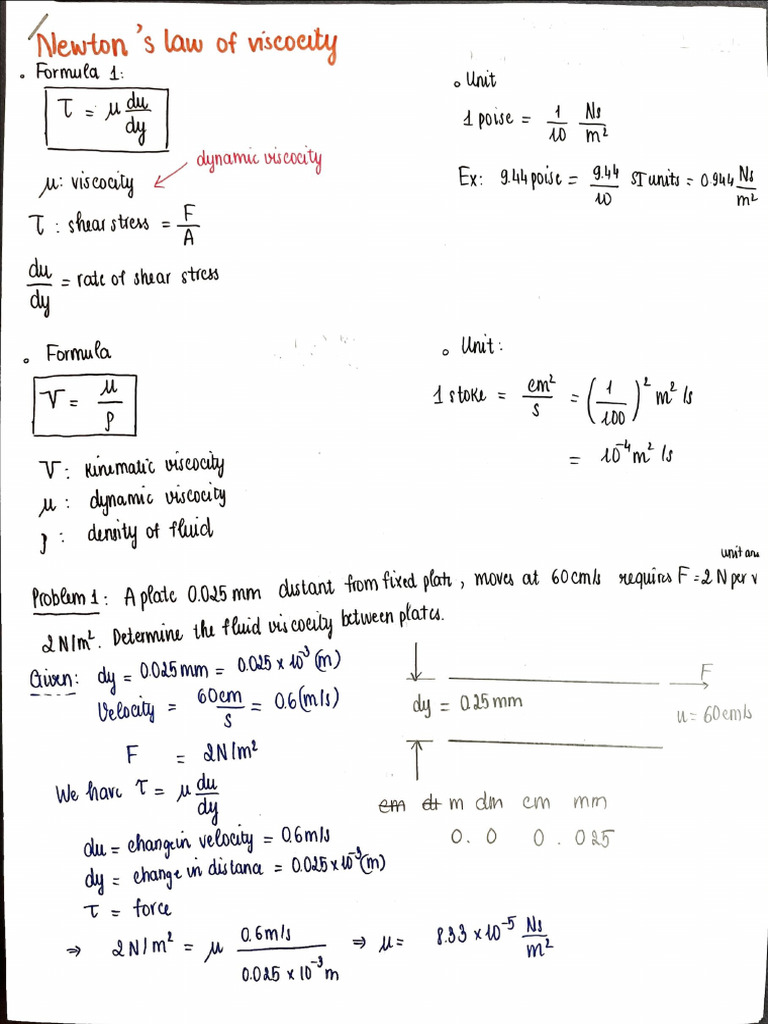 Newton's law of viscocity
• Formula 1:
τ = μ du/dy
dynamic viscocity
μ: viscocity
τ: shear stress = F/A
du/dy = rate of shear stress
• Unit
1 poise = 1/10 Ns/m²
Ex: 9.44 poise = 9.44/10 ST units = 0.944 Ns/m²
• Formula
V = μ/ρ
V: kinematic viscocity
μ: dynamic viscocity
ρ: density of fluid
• Unit:
1 stoke = cm²/s = (1/100)² m²/s
= 10⁻⁴ m²/s
unit are
Problem 1: A plate 0.025 mm distant from fixed plate, moves at 60cm/s requires F = 2 N per
2 N/m². Determine the fluid viscocity between plates.
Given: dy = 0.025 mm = 0.025 x 10⁻³ (m)
Velocity = 60cm/s = 0.6 (m/s)
F = 2N/m²
We have τ = μ du/dy
du = change in velocity = 0.6 m/s
dy = change in distance = 0.025 x 10⁻³ (m)
τ = force
⇒ 2 N/m² = μ 0.6 m/s / 0.025 x 10⁻³ m ⇒ μ = 8.33 x 10⁻⁵ Ns/m²
F
dy = 0.25 mm
u = 60cm/s
cm dt m dm cm mm
0. 0 0 . 025